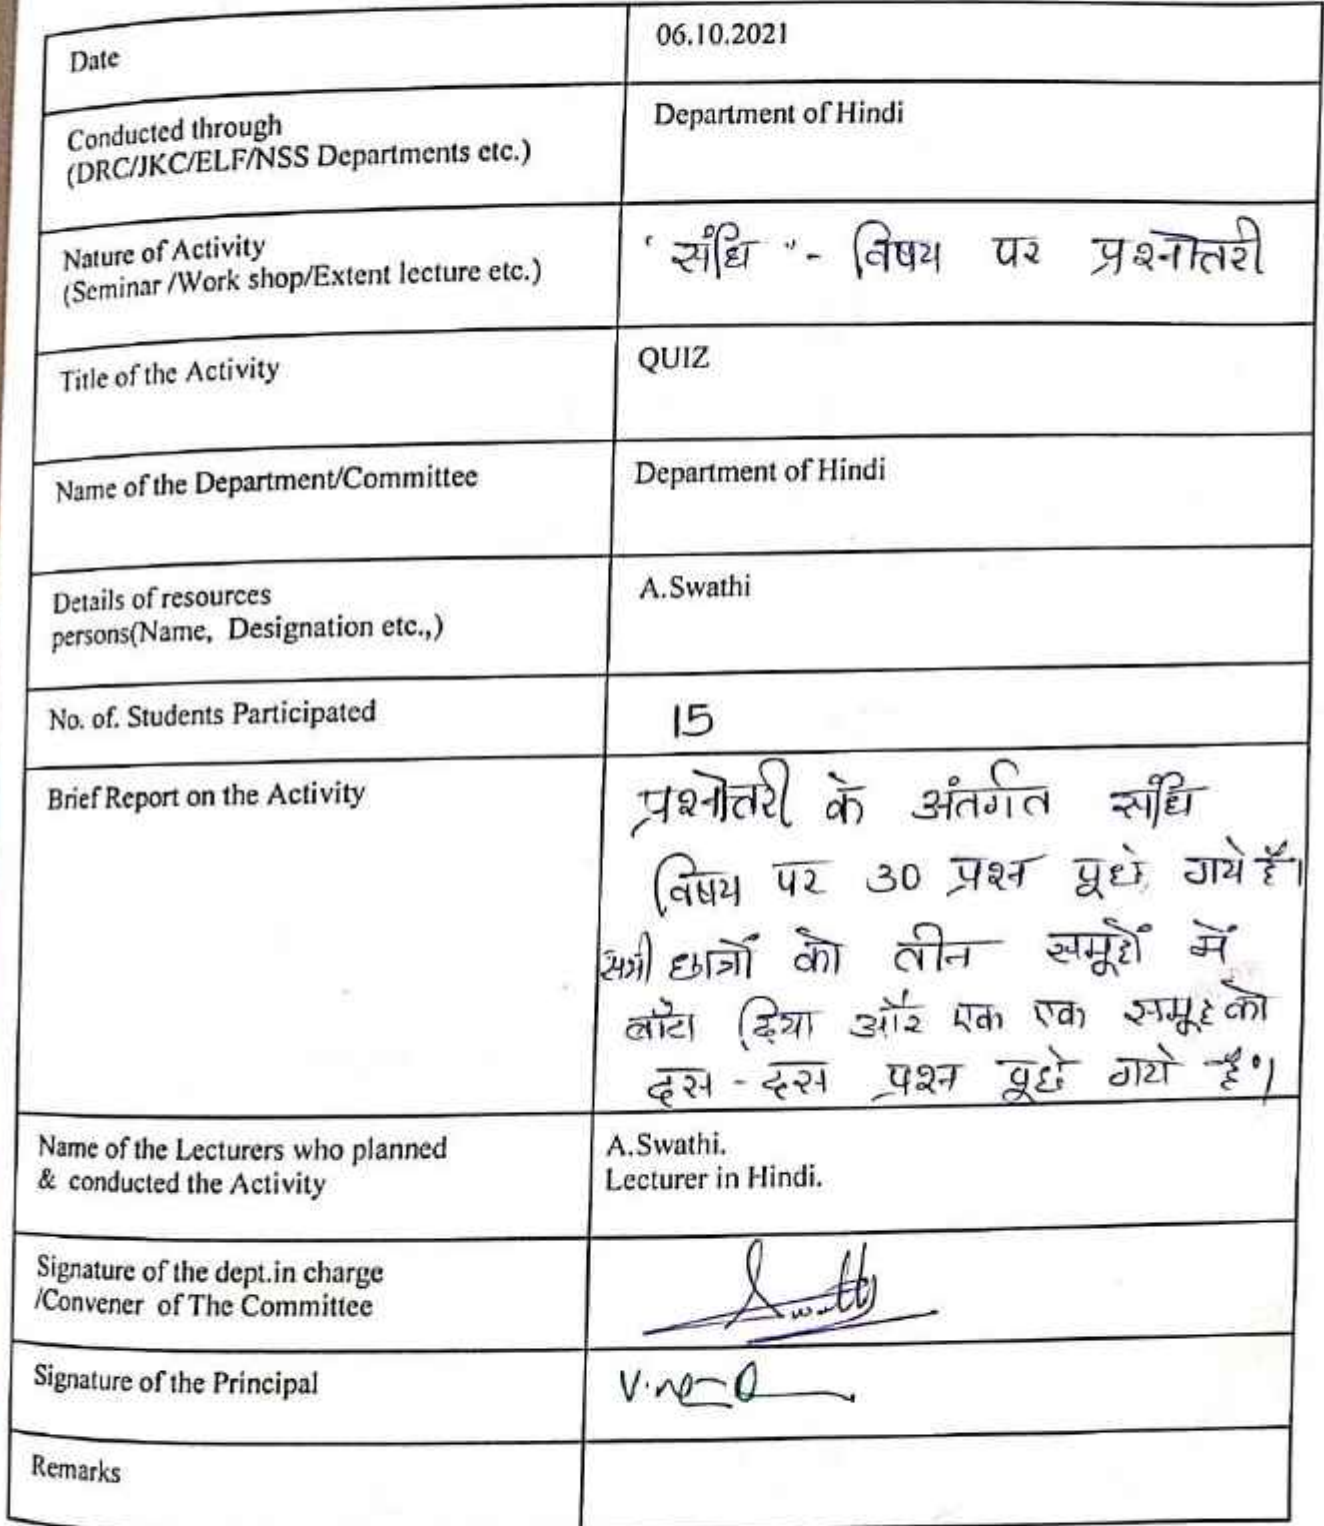 Date
06.10.2021
Conducted through
(DRC/JKC/ELF/NSS Departments etc.)
Department of Hindi
Nature of Activity
(Seminar /Work shop/Extent lecture etc.)
" संधि " - विषय पर प्रश्नोत्तरी
Title of the Activity
QUIZ
Name of the Department/Committee
Department of Hindi
Details of resources
persons(Name, Designation etc.,)
A.Swathi
No. of. Students Participated
15
Brief Report on the Activity
प्रश्नोत्तरी के अंतर्गत संधि
विषय पर 30 प्रश्न पूछे गये हैं।
सभी छात्रों को तीन समूहों में
बाँटा दिया और एक एक समूह को
दस - दस प्रश्न पूछे गये हैं।
Name of the Lecturers who planned
& conducted the Activity
A.Swathi.
Lecturer in Hindi.
Signature of the dept.in charge
/Convener of The Committee
Swathi
Signature of the Principal
Remarks